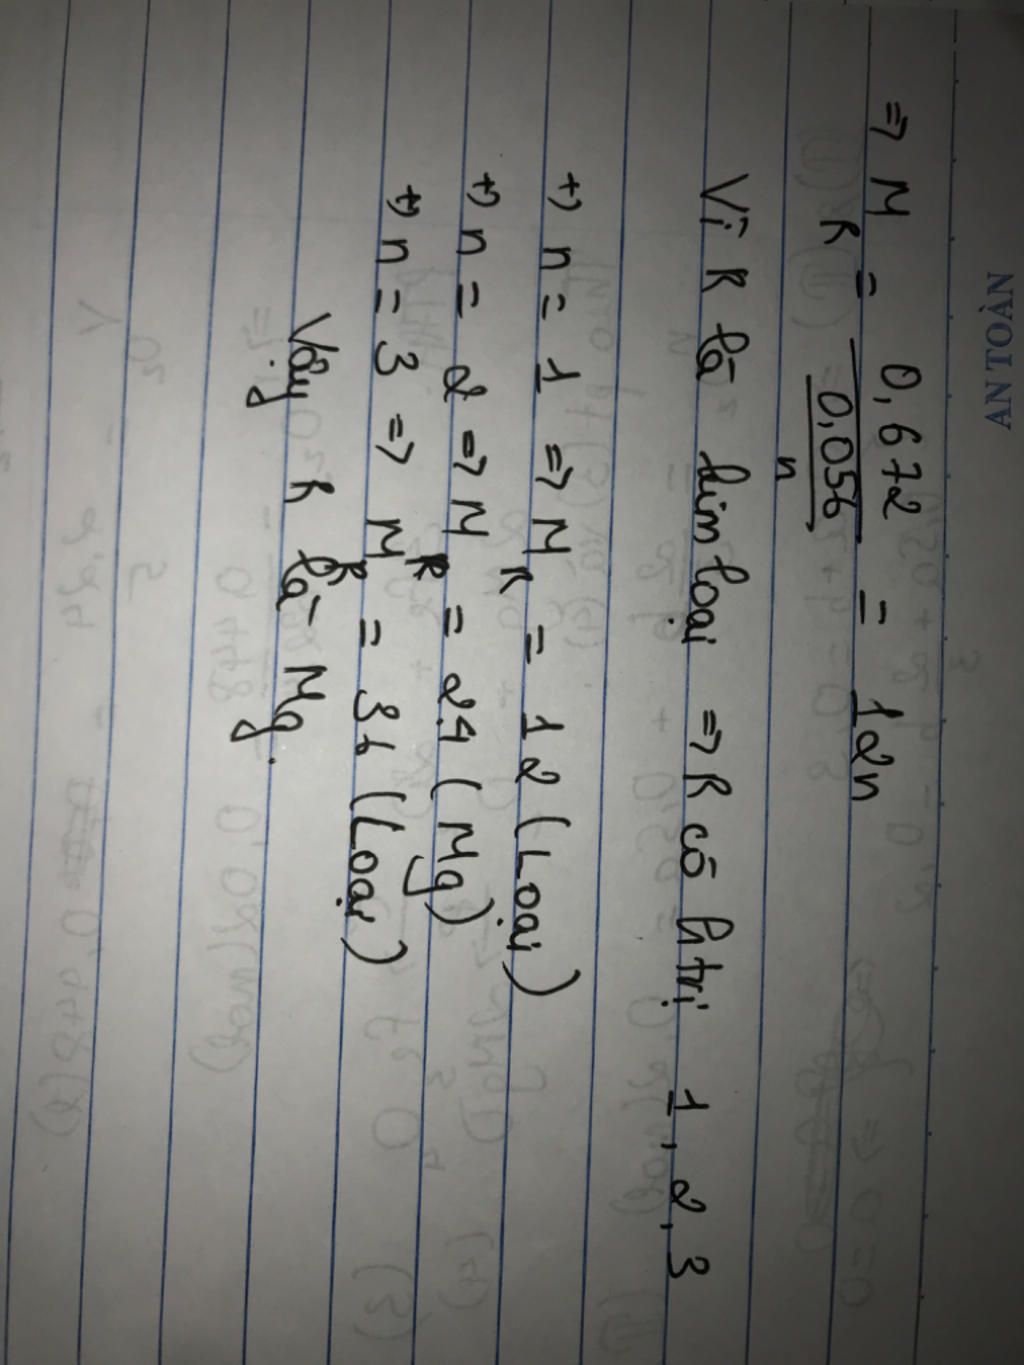 AN TOÀN
=> M_R = 0,672 / (0,056 / n) = 12n
Vì R là kim loại => R có h trị 1, 2, 3
+) n = 1 => M_R = 12 (Loại)
+) n = 2 => M_R = 24 (Mg)
+) n = 3 => M_R = 36 (Loại)
Vậy R là Mg.